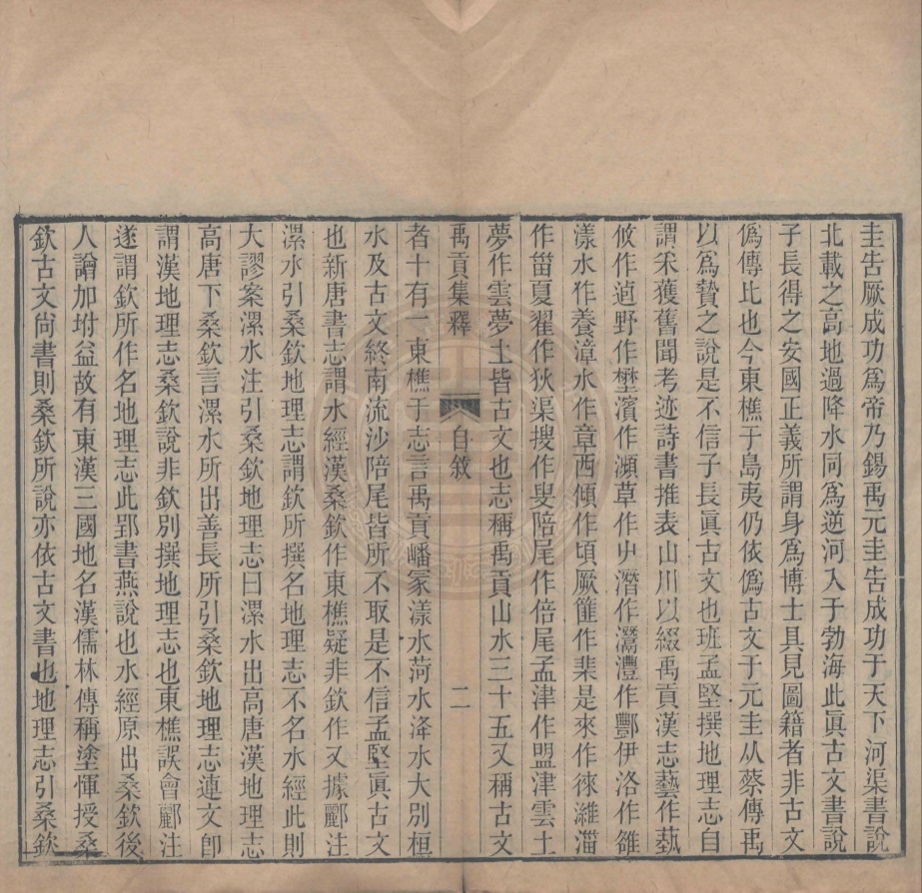 圭告厥成功爲帝乃錫禹元圭告成功于天下河渠書說
北載之高地過降水同爲逆河入于勃海此眞古文書說
子長得之安國正義所謂身爲博士具見圖籍者非古文
僞傳比也今東樵于島夷仍依僞古文于元圭从蔡傳禹
以爲贄之說是不信子長眞古文也班孟堅撰地理志自
謂采獲舊聞考迹詩書推表山川以綴禹貢漢志藝作蓺
攸作逌野作壄濱作瀕草作屮濳作灊灃作酆伊洛作雒
漾水作養漳水作章西傾作頃厥篚作棐是來作徠濰淄
作甾夏翟作狄渠搜作叟陪尾作倍尾孟津作盟津雲土
夢作雲夢土皆古文也志稱禹貢山水三十五又稱古文
禹貢集釋 自敘 二
者十有一東樵于志言禹貢嶓冢漾水菏水洚水大別桓
水及古文終南流沙陪尾皆所不取是不信孟堅眞古文
也新唐書志謂水經漢桑欽作東樵疑非欽作又據酈注
漯水引桑欽地理志謂欽所撰名地理志不名水經此則
大謬案漯水注引桑欽地理志曰漯水出高唐漢地理志
高唐下桑欽言漯水所出善長所引桑欽地理志連文卽
謂漢地理志桑欽說非欽別撰地理志也東樵誤會酈注
遂謂欽所作名地理志此郢書燕說也水經原出桑欽後
人譄加坿益故有東漢三國地名漢儒林傳稱塗惲授桑
欽古文尙書則桑欽所說亦依古文書也地理志引桑欽